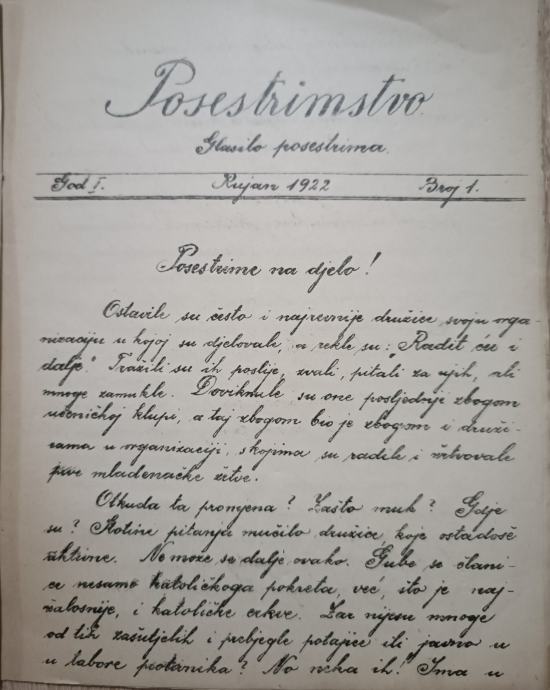 Posestrimstvo.
Glasilo posestrima.
God I. Rujan 1922 Broj 1.
Posestrime na djelo!
Ostavile su često i najrevnije družice svoju orga-
nizaciju u kojoj su djelovale, a rekle su: "Radit će i
dalje." Tražili su ih poslije, zvali, pitali za njih, ali
mnoge zamukle. Doviknule su one posljednji zbogom
učeničkoj klupi, a taj zbogom bio je zbogom i druži-
cama u organizaciji, s kojima su radile i žrtvovale
prve mladenačke žrtve.
Otkuda ta promjena? Zašto muk? Gdje
su? Stotine pitanja mučilo družice, koje ostadoše
Ne može se dalje ovako. Gube se člani-
ce nesamo katoličkoga pokreta, već, što je naj-
žalosnije, i katoličke crkve. Zar nijesu mnoge
od tih zašutjelih i prebjegle potajice ili javno u
u tabore protivnika? No neka ih! Ima u